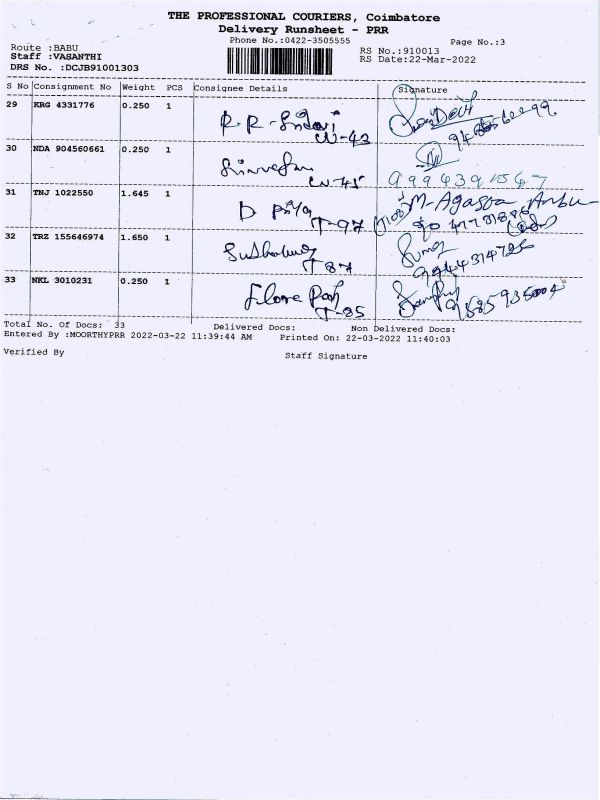 THE PROFESSIONAL COURIERS, Coimbatore
Delivery Runsheet - PRR
Phone No.:0422-3505555
Page No.:3
Route :BABU
Staff :VASANTHI
DRS No. :DCJB91001303
RS No.:910013
RS Date:22-Mar-2022
S No Consignment No Weight PCS Consignee Details Signature
29 KRG 4331776 0.250 1
R R -
W-43
30 NDA 904560661 0.250 1
W-45
9994391567
31 TNJ 1022550 1.645 1
D Priya
T-97
M-Agasta Anbu
32 TRZ 155646974 1.650 1
T 87
9944314726
33 NKL 3010231 0.250 1
T-85
9585935004
Total No. Of Docs: 33 Delivered Docs: Non Delivered Docs:
Entered By :MOORTHYPRR 2022-03-22 11:39:44 AM Printed On: 22-03-2022 11:40:03
Verified By Staff Signature